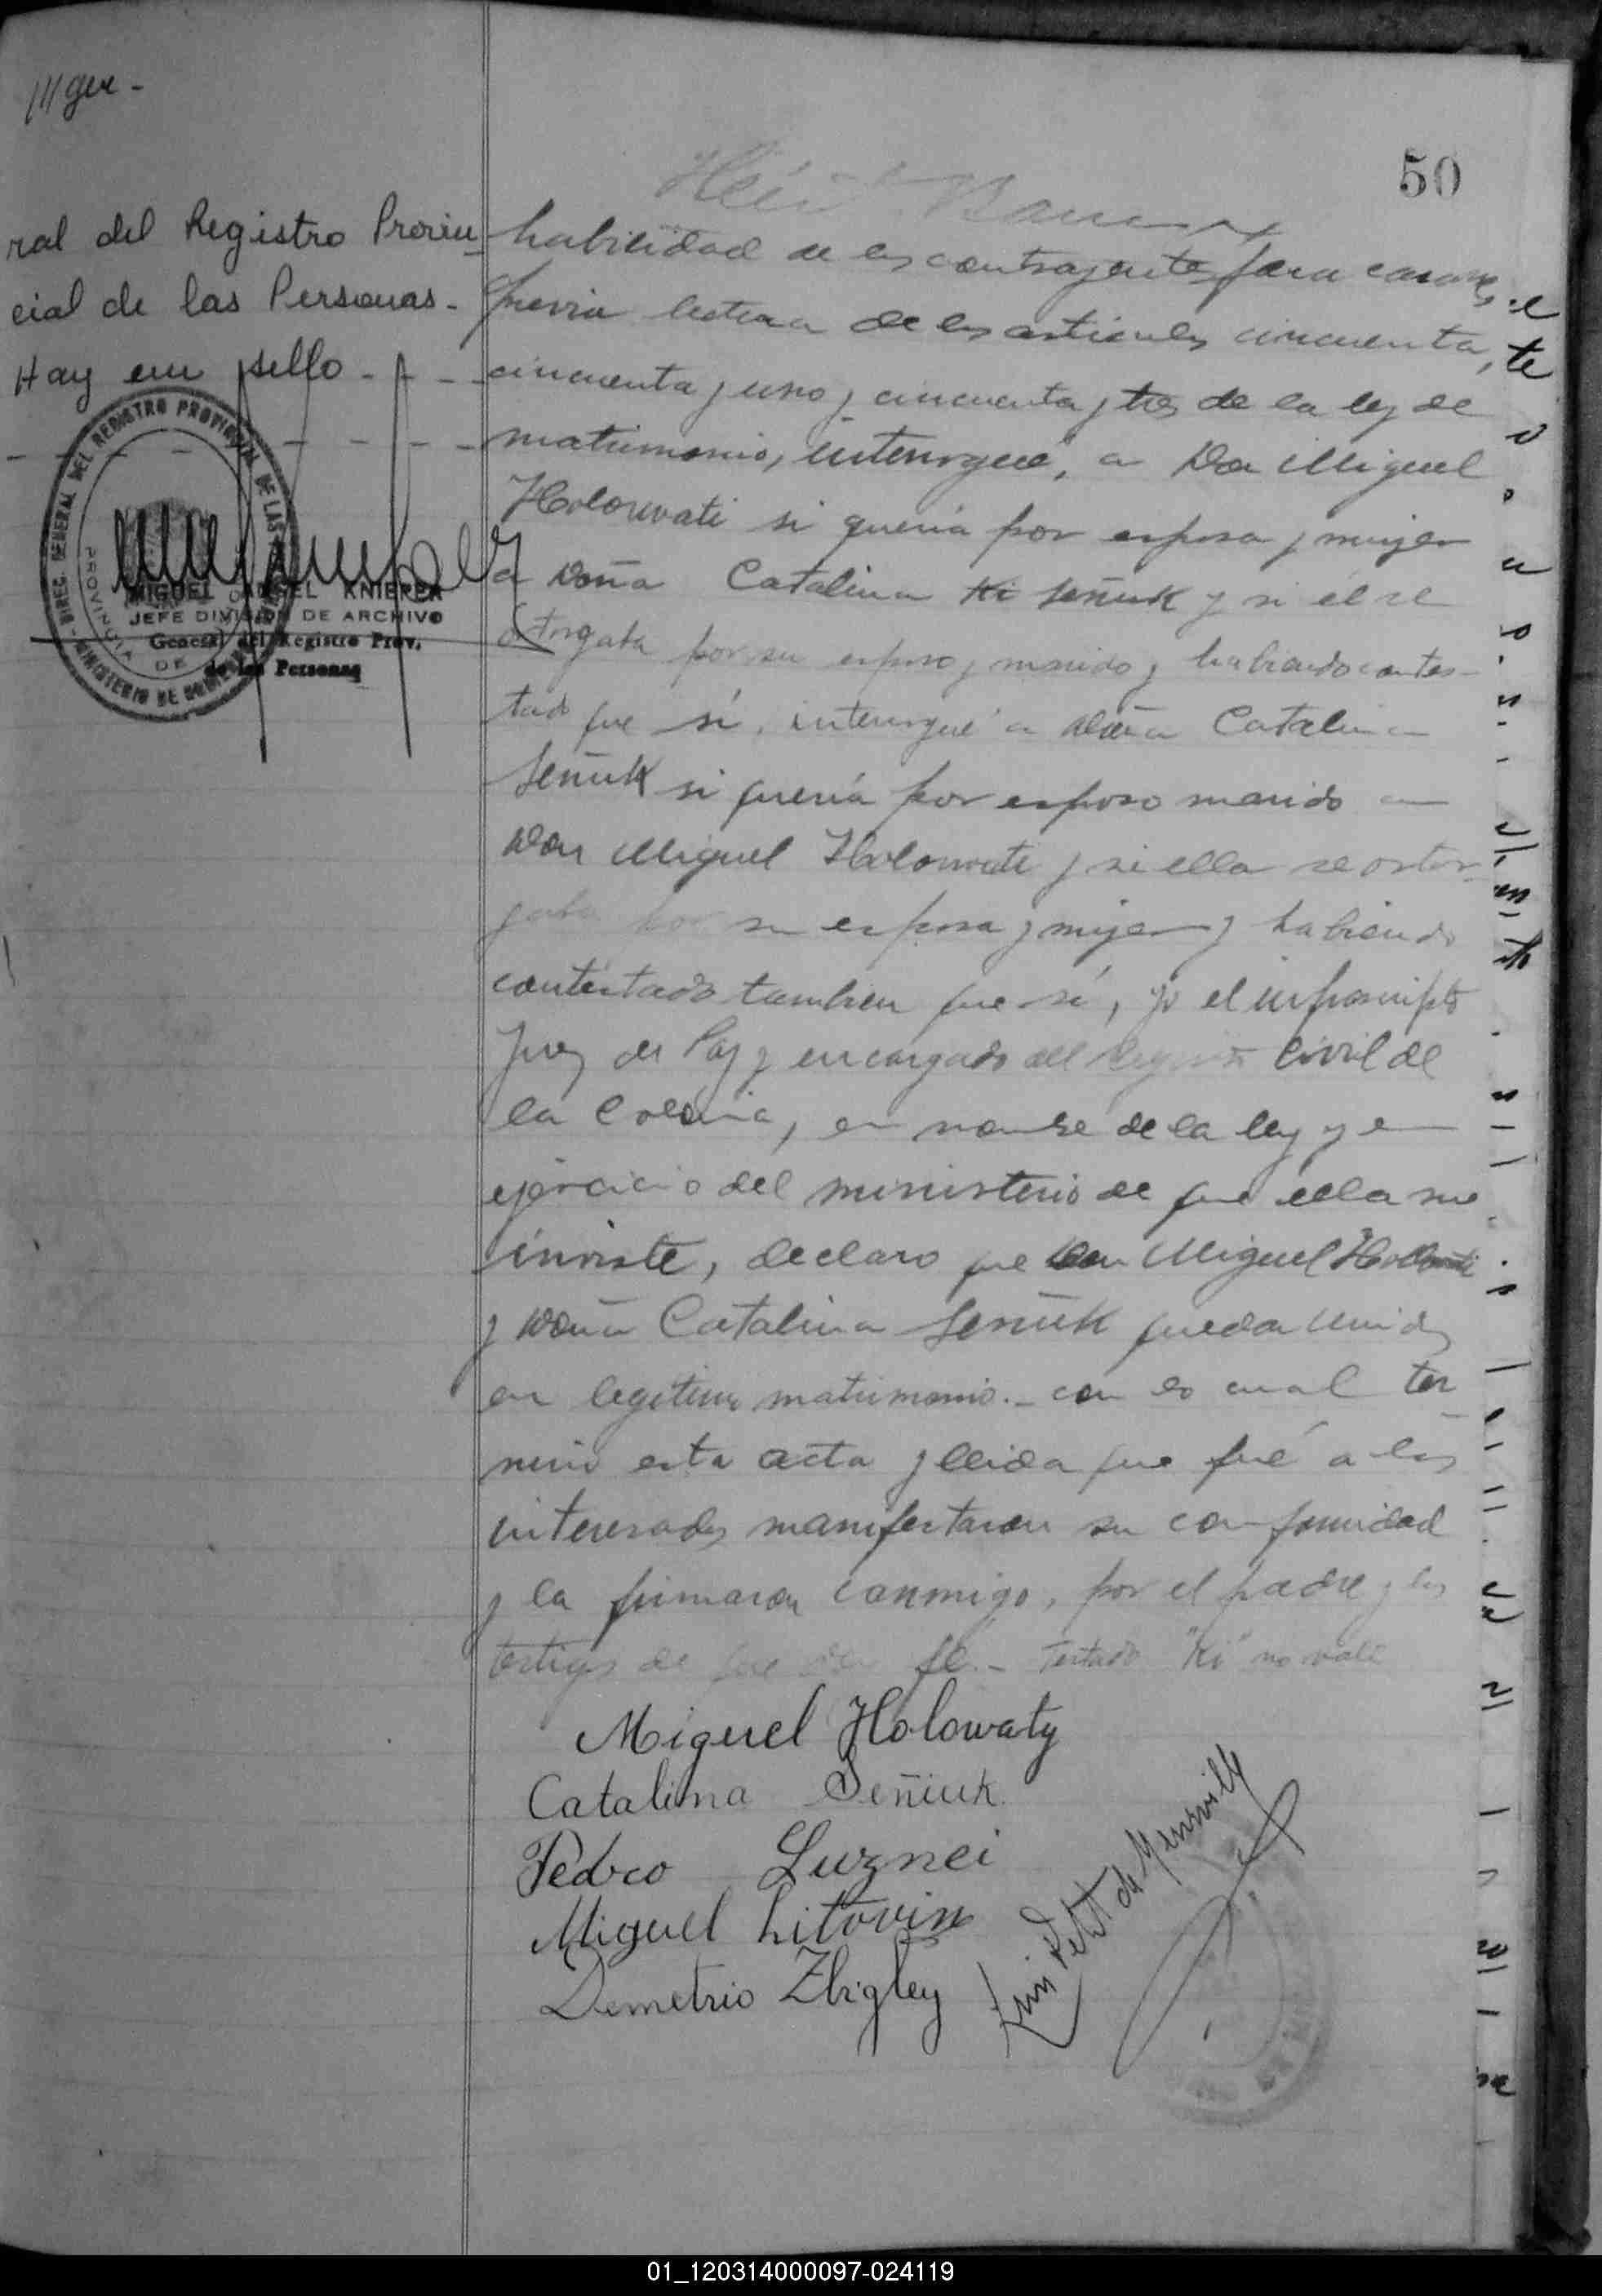 50
ral del Registro Provin_
cial de las Personas_
Hay un sello
DIREC. GENERAL DEL REGISTRO PROVINCIAL DE LAS
PROVINCIA DE
MIGUEL ANGEL KNIEPER
JEFE DIVISION DE ARCHIVO
General del Registro Prov.
de las Personas
habilidad de los contrayentes para casarse,
previa lectura de los articulos cincuenta,
cincuenta y uno y cincuenta y tres de la ley de
matrimonio, interrogué, a Don Miguel
Holowati si queria por esposa y mujer
a Doña Catalina Ki Señuk y si él se
otorgaba por su esposo y marido y habiendo contes-
tado que sí, interrogué a doña Catalina
Señuk si quería por esposo marido a
Don Miguel Holowati y si ella se otor-
gaba por su esposa y mujer y habiendo
contestado tambien que sí, yo el infrascripto
Juez de Paz y encargado del Registro Civil de
la Colonia, en nombre de la ley y en
ejercicio del ministerio de que ella me
inviste, declaro que Don Miguel Holowati
y Doña Catalina Señuk quedan unidos
en legitimo matrimonio._ con lo cual ter_
minó esta acta y leida que fué a los
interesados manifestaron su conformidad
y la firmaron conmigo, por el padre y los
testigos de que doy fé._ Testado "Ki" no vale
Miguel Holowaty
Catalina Señiuk
Pedro Luznei
Miguel Litovin
Demetrio Zhigley
Luis Petit de Meurville
01_120314000097-024119